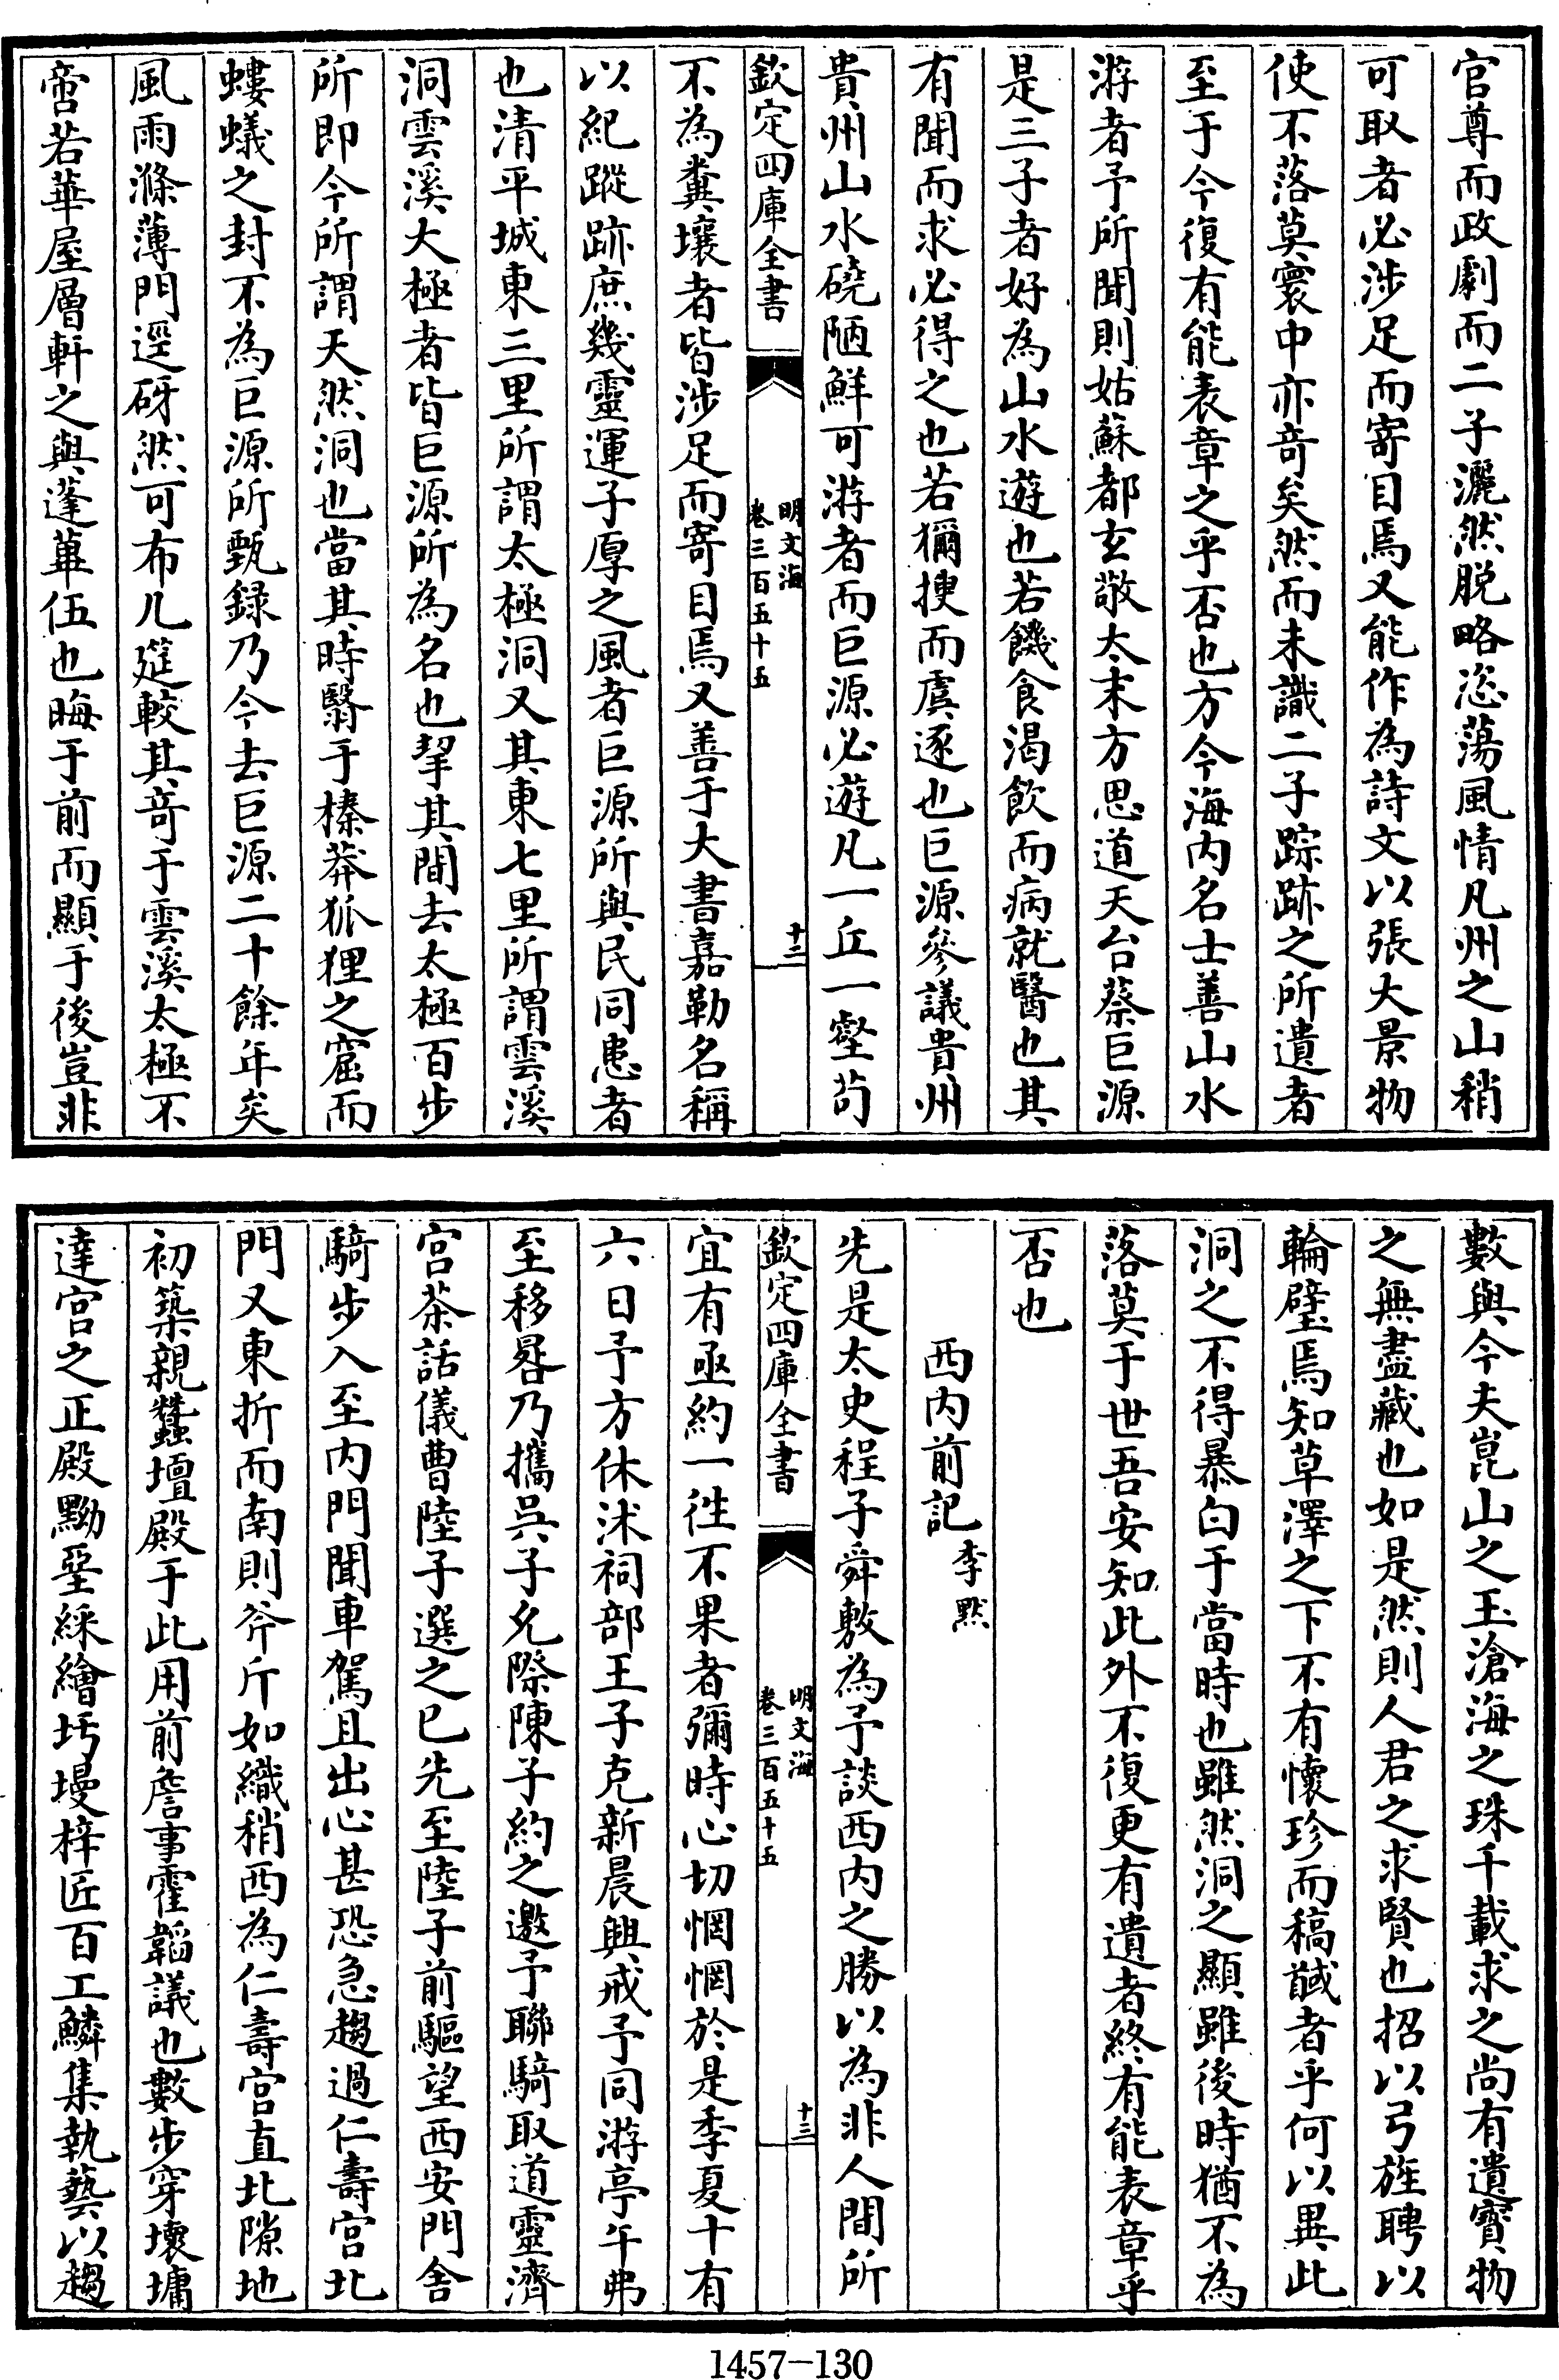 官尊而政劇而二子灑然脱略恣蕩風情凡州之山稍
可取者必涉足而寄目焉又能作為詩文以張大景物
使不落莫寰中亦竒矣然而未識二子踪跡之所遺者
至于今復有能表章之乎否也方今海内名士善山水
游者予所聞則姑蘇都玄敬太末方思道天台蔡巨源
是三子者好為山水遊也若饑食渴飲而病就醫也其
有聞而求必得之也若獮㨮而虞逐也巨源參議貴州
貴州山水磽陋鮮可游者而巨源必遊凡一丘一壑茍
欽定四庫全書
明文海
卷三百五十五
十二
不為糞壤者皆涉足而寄目焉又善于大書嘉勒名稱
以紀蹤跡庶幾靈運子厚之風者巨源所與民同患者
也清平城東三里所謂太極洞又其東七里所謂雲溪
洞雲溪大極者皆巨源所為名也挐其間去太極百步
所即今所謂天然洞也當其時翳于榛莽狐狸之窟而
螻蟻之封不為巨源所甄録乃今去巨源二十餘年矣
風雨滌薄門逕砑然可布几筵較其竒于雲溪太極不
啻若華屋層軒之與蓬蓽伍也晦于前而顯于後豈非
數與今夫崑山之玉滄海之珠千載求之尚有遺寶物
之無盡藏也如是然則人君之求賢也招以弓旌聘以
輪璧焉知草澤之下不有懷珍而稿馘者乎何以異此
洞之不得暴白于當時也雖然洞之顯雖後時猶不為
落莫于世吾安知此外不復更有遺者終有能表章乎
否也
西内前記 李默
先是太史程子舜敷為予談西内之勝以為非人間所
欽定四庫全書
明文海
卷三百五十五
十三
宜有亟約一徃不果者彌時心切惘惘於是季夏十有
六日予方休沐祠部王子克新晨興戒予同游亭午弗
至移晷乃攜吳子允際陳子約之邀予聯騎取道靈濟
宫茶話儀曹陸子選之已先至陸子前驅望西安門舍
騎步入至内門聞車駕且出心甚恐急趨過仁壽宫北
門又東折而南則斧斤如織稍西為仁壽宫直北隙地
初築親蠶壇殿于此用前詹事霍韜議也數步穿壞墉
達宫之正殿黝堊綵繪圬墁梓匠百工鱗集執藝以趨
1457-130